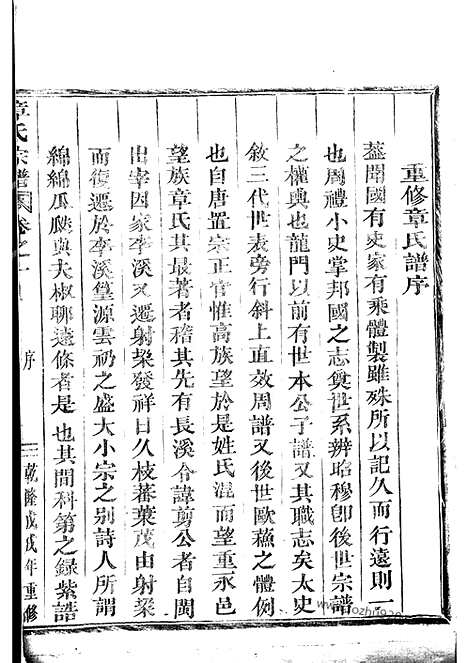 重修章氏譜序
葢聞國有史家有乘體製雖殊所以記久而行遠則一
也周禮小史掌邦國之志奠世系辨昭穆卽後世宗譜
之權輿也龍門以前有世本公子譜又其職志矣太史
敘三代世表旁行斜上直效周譜又後世歐蘇之體例
也自唐置宗正官惟高族望於是姓氏混而望重永邑
望族章氏其最著者稽其先有長溪令諱剪公者自閩
出宰因家李溪又遷射梁發祥日久枝蕃葉茂由射梁
而復遷於李溪篁源雲礽之盛大小宗之別詩人所謂
綿綿瓜瓞與大椒聊遠條者是也其間科第之錄紫誥
章氏宗譜 卷之一 序 乾隆戊戌年重修